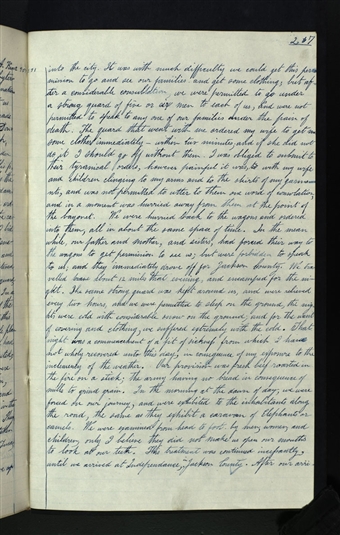 267
into the city. It was with much difficulty we could get this per-
mission to go and see our families and get some clothing; but af-
ter a considerable consultation, we were permitted to go under
a strong guard of five or six men to each of us, and were not
permitted to speak to any one of our families under the pain of
death. The guard that went with me ordered my wife to get me
some clothes immediately - within two minutes, and if she did not
do it I should go off without them. I was obliged to submit to
their tyrannical orders, however painful it was, to with my wife
and children clinging to my arms and to the skirts of my garme-
nts, and was not permitted to utter to them one word of consolation,
and in a moment was hurried away from them at the point of
the bayonet. We were hurried back to the wagons and ordered
into them, all in about the same space of time. In the mean
while, our father and mother, and sisters, had forced their way to
the wagons to get permission to see us; but were forbidden to speak
to us; and they immediately drove off for Jackson County. We tra-
veled about 12 miles that evening, and encamped for the ni-
ght. The same strong guard was kept around us, and were relieved
every two hours, and we were permitted to sleep on the ground, the nig-
hts were cold with considerable snow on the ground; and for the want
of covering and clothing, we suffered extremely with the cold. That
night was a commencement of a fit of sickness from which I have
not wholly recovered unto this day, in consequence of my exposure to the
inclemency of the weather. Our provision was fresh beef roasted in
the fire on a stick; the army having no bread in consequence of
mills to grind grain. In the morning at the dawn of day, we were
forced on our journey, and were exhibited to the inhabitants along
the road, the same as they exhibit a caravan of elephants or
camels. We were examined from head to foot, by men, women and
children, only I believe they did not make us open our mouths
to look at our teeth. This treatment was continued incessantly,
until we arrived at Independence, Jackson County. After our arri-